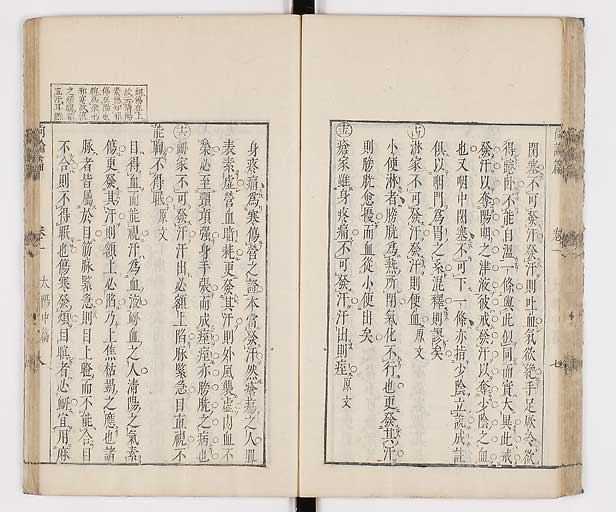 閉塞不可發汗發汗則吐血氣欲絕手足厥冷欲
得踡臥不能自溫一條與此似同而實大異此戒
發汗以奪陽明之津液彼戒發汗以奪少陰之血
也又咽中閉塞不可下一條亦指少陰立說成註
俱以咽門為胃之系混釋則謬矣
淋家不可發汗發汗則便血原文
小便淋者膀胱為熱所閉氣化不行也更發其汗
則膀胱愈擾而血從小便出矣
瘡家雖身疼痛不可發汗汗出則痙原文
身疼痛為寒傷營之證本當發汗然瘡瘍之人肌
表素虛營血暗耗更發其汗則外風襲虛內血不
榮必至頸項強身手張而成痙痙亦膀胱之病也
衄家不可發汗汗出必額上陷脈緊急目直視不
能眴不得眠原文
目得血而能視汗為血液衄血之人清陽之氣素
傷更發其汗則額上必陷乃上焦枯竭之應也諸
脈者皆屬於目筋脈緊急則目上瞪而不能合目
不合則不得眠也傷寒發煩目瞑者必衄宜用麻
尚論篇
卷一
太陽中篇